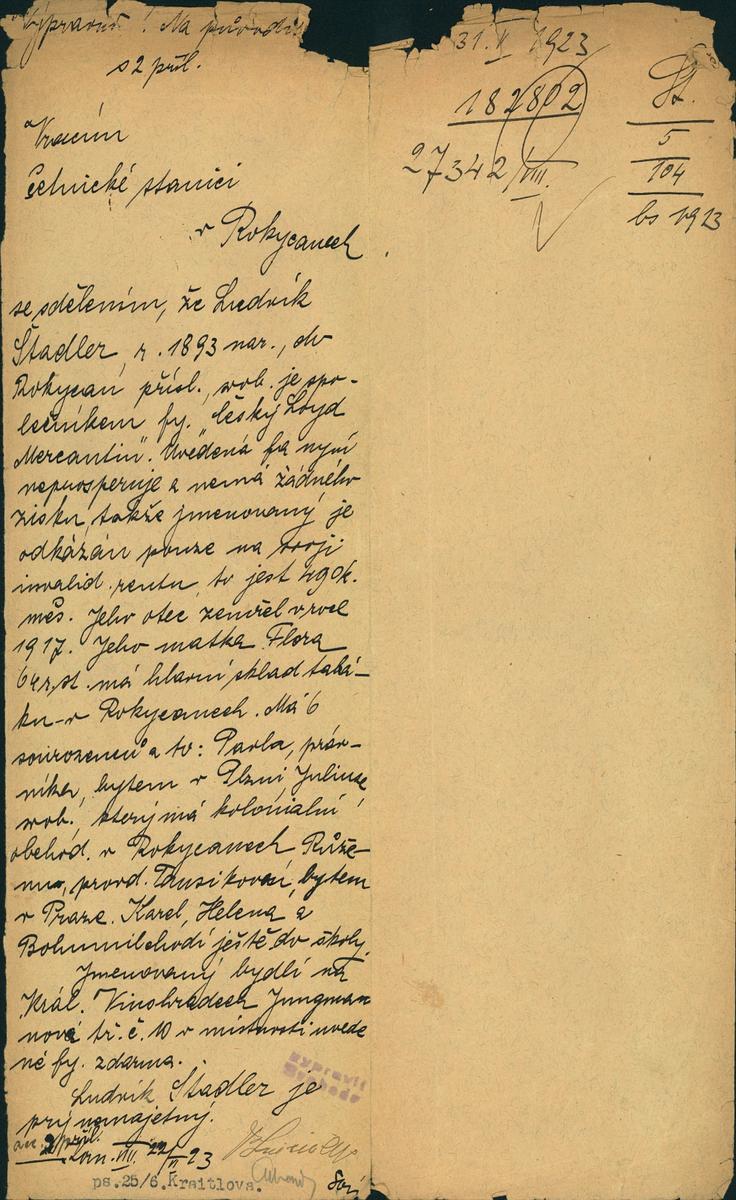 Vypravit! Na původ
s 2 příl.
Vracím
četnické stanici
v Rokycanech
se sdělením, že Ludvík
Stadler, r. 1893 nar., do
Rokycan přísl., svob. je spo-
lečníkem fy. "Český Loyd
Mercantin". Uvedená fa nyní
neprosperuje a nemá žádného
zisku, takže jmenovaný je
odkázán pouze na svoji
invalid. rentu, to jest 490 k.
měs. Jeho otec zemřel v roce
1917. Jeho matka Flora
64 r. st. má hlavní sklad tabá-
ku v Rokycanech. Má 6
sourozenců a to: Pavla, práv-
níka, bytem v Plzni, Juliuse
svob., který má koloniální
obchod v Rokycanech Růže-
nu, provd. Tausikovou, bytem
v Praze. Karel, Helena a
Bohumil chodí ještě do školy.
Jmenovaný bydlí na
Král. Vinohradech Jungman
nova tř. č. 10 v místnosti uvede
né fy. zdarma.
Ludvík Stadler je
prý nemajetný.
2 příl.
VIII. 22/II 23
vypravit
Svoboda
ps. 25/6. Kraitlova.
31. V 1923
182802
27342/VIII.
St.
5
104
bs 1923